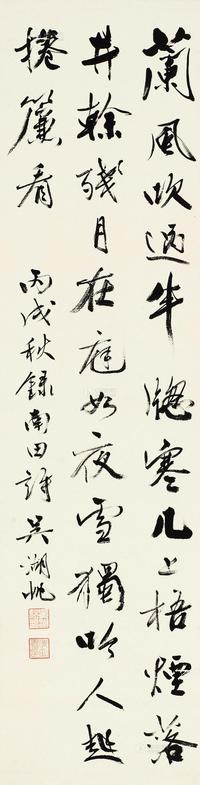 蘭風吹過半牕寒几上梧煙落
井榦殘月在庭如夜雪獨吟人起
捲簾看
丙戌秋錄南田詩吳湖帆